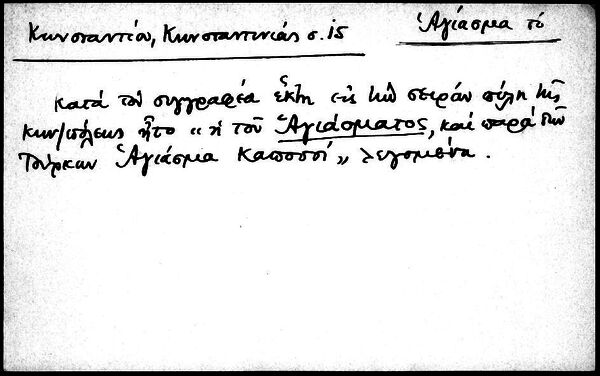 Κωνσταντίου, Κωνσταντινιάς σ. 15 Ἁγίασμα τό
κατά τόν συγγραφέα ἕκτη εἰς τήν σειράν πύλη τῆς
Κων/πόλεως ἦτο „ ἡ τοῦ Ἁγιάσματος, καί παρά τῶν
Τούρκων Ἁγιάσμα Καπουσί „ λεγομένα.